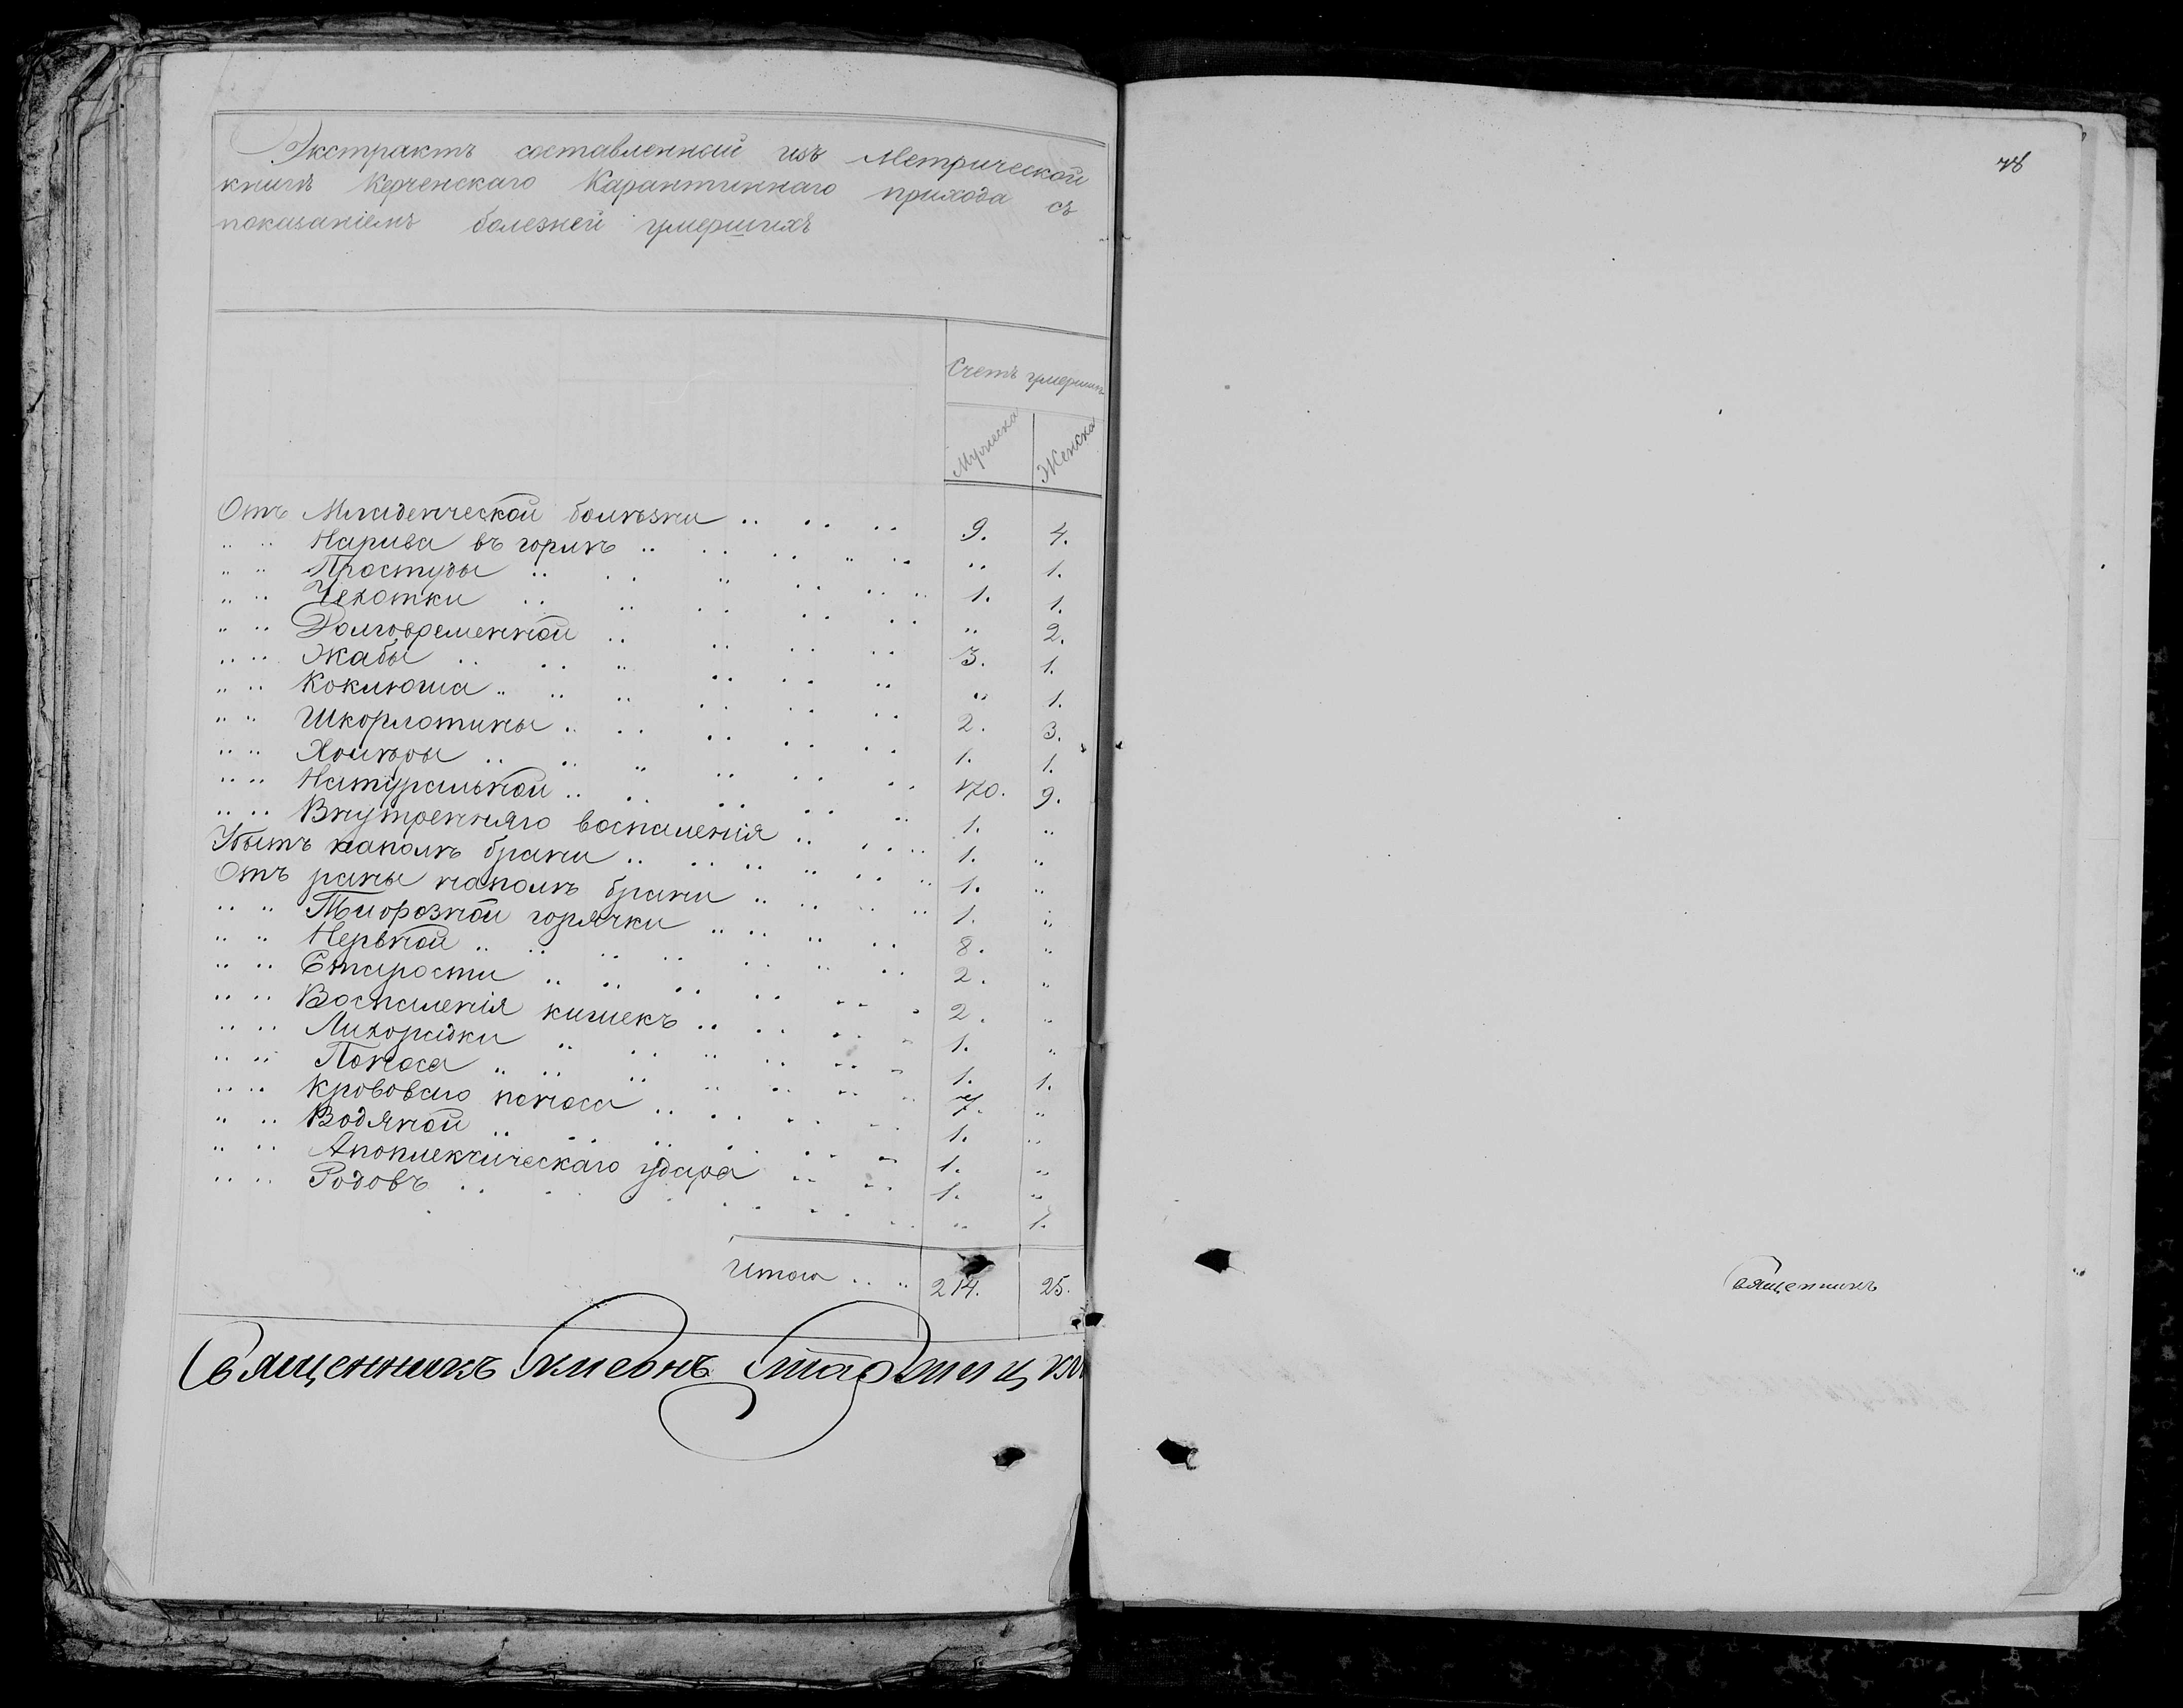 Экстрактъ составленный изъ Метрической
книги Керченскаго Карантиннаго прихода съ
показаніемъ болезней умершихъ
Счетъ умершихъ
Мужеска Женска
Отъ Младенческой болѣзни .. .. .. 9. 4.
" " Нарива въ горлѣ .. .. .. " .. " 1.
" " Простуды .. .. " .. .. .. 1. 1.
" " Чехотки .. .. .. .. .. " 2.
" " Долговременной .. .. .. .. 3. 1.
" " Жабы .. .. .. .. .. .. " 1.
" " Коклюша .. .. .. .. .. .. 2. 3.
" " Шкорлотины .. .. .. .. .. 1. 1.
" " Холѣры .. .. .. .. .. .. 170. 9.
" " Натуральной .. .. .. .. .. 1. "
" " Внутренняго воспаленія .. .. .. 1. "
Убитъ наполѣ брани .. .. .. .. .. 1. "
Отъ раны наполѣ брани .. .. .. .. 1. "
" " Тиорозной горячки .. .. .. .. 8. "
" " Нервной .. .. .. .. .. .. 2. "
" " Старости .. .. .. .. .. .. 2. "
" " Воспаленія кишекъ .. .. .. .. 1. "
" " Лихорадки .. .. .. .. .. .. 1. 1.
" " Поноса .. .. .. .. .. .. 7. "
" " Кроваваго поноса .. .. .. .. 1. "
" " Водяной .. .. .. .. .. .. 1. "
" " Апоплексическаго удара .. .. 1. "
" " Родовъ .. .. .. .. .. .. " 1.
Итого .. .. 214. 25.
Священникъ Симеонъ
78
Священникъ